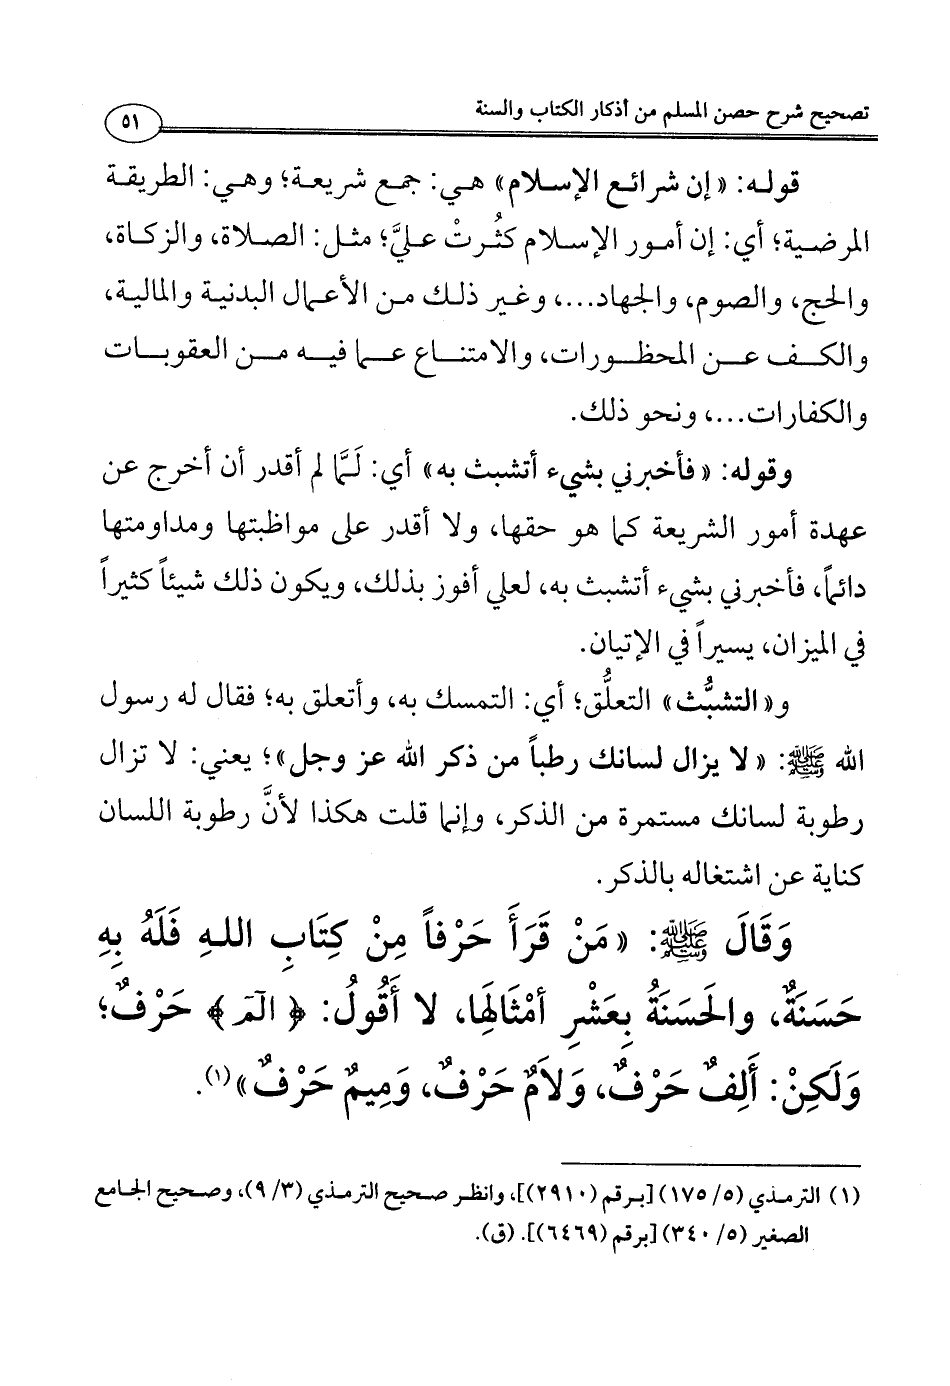 تصحيح شرح حصن المسلم من أذكار الكتاب والسنة
٥١
قوله: «إن شرائع الإسلام» هي: جمع شريعة؛ وهي: الطريقة
المرضية؛ أي: إن أمور الإسلام كثُرتْ عليَّ؛ مثل: الصلاة، والزكاة،
والحج، والصوم، والجهاد...، وغير ذلك من الأعمال البدنية والمالية،
والكف عن المحظورات، والامتناع عما فيه من العقوبات
والكفارات...، ونحو ذلك.
وقوله: «فأخبرني بشيء أتشبث به» أي: لَمَّا لم أقدر أن أخرج عن
عهدة أمور الشريعة كما هو حقها، ولا أقدر على مواظبتها ومداومتها
دائماً، فأخبرني بشيء أتشبث به، لعلي أفوز بذلك، ويكون ذلك شيئاً كثيراً
في الميزان، يسيراً في الإتيان.
و«التشبُّث» التعلُّق؛ أي: التمسك به، وأتعلق به؛ فقال له رسول
الله ﷺ: «لا يزال لسانك رطباً من ذكر الله عز وجل»؛ يعني: لا تزال
رطوبة لسانك مستمرة من الذكر، وإنما قلت هكذا لأنَّ رطوبة اللسان
كناية عن اشتغاله بالذكر.
وَقَالَ ﷺ: «مَنْ قَرَأَ حَرْفاً مِنْ كِتَابِ اللهِ فَلَهُ بِهِ
حَسَنَةٌ، والحَسَنَةُ بِعَشْرِ أمْثَالِهَا، لا أَقُولُ: ﴿الٓمٓ﴾ حَرْفٌ؛
وَلَكِنْ: أَلِفٌ حَرْفٌ، وَلَامٌ حَرْفٌ، وَمِيمٌ حَرْفٌ»(١).
(١) الترمذي (٥/ ١٧٥) [برقم (٢٩١٠)]، وانظر صحيح الترمذي (٣/ ٩)، وصحيح الجامع
الصغير (٥/ ٣٤٠) [برقم (٦٤٦٩)]. (ق).